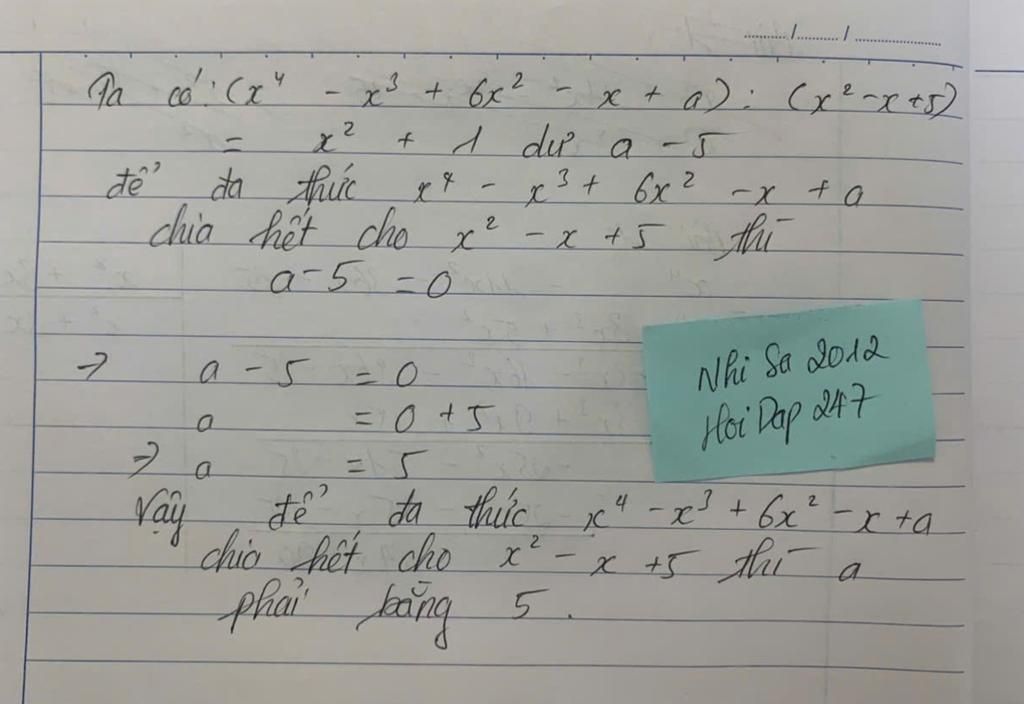 Ta có: (x⁴ - x³ + 6x² - x + a) : (x² - x + 5)
= x² + 1 dư a - 5
để đa thức x⁴ - x³ + 6x² - x + a
chia hết cho x² - x + 5 thì
a - 5 = 0
→ a - 5 = 0
a = 0 + 5
→ a = 5
Vậy để đa thức x⁴ - x³ + 6x² - x + a
chia hết cho x² - x + 5 thì a
phải bằng 5.
Nhi Sa 2012
Hoi Dap 247